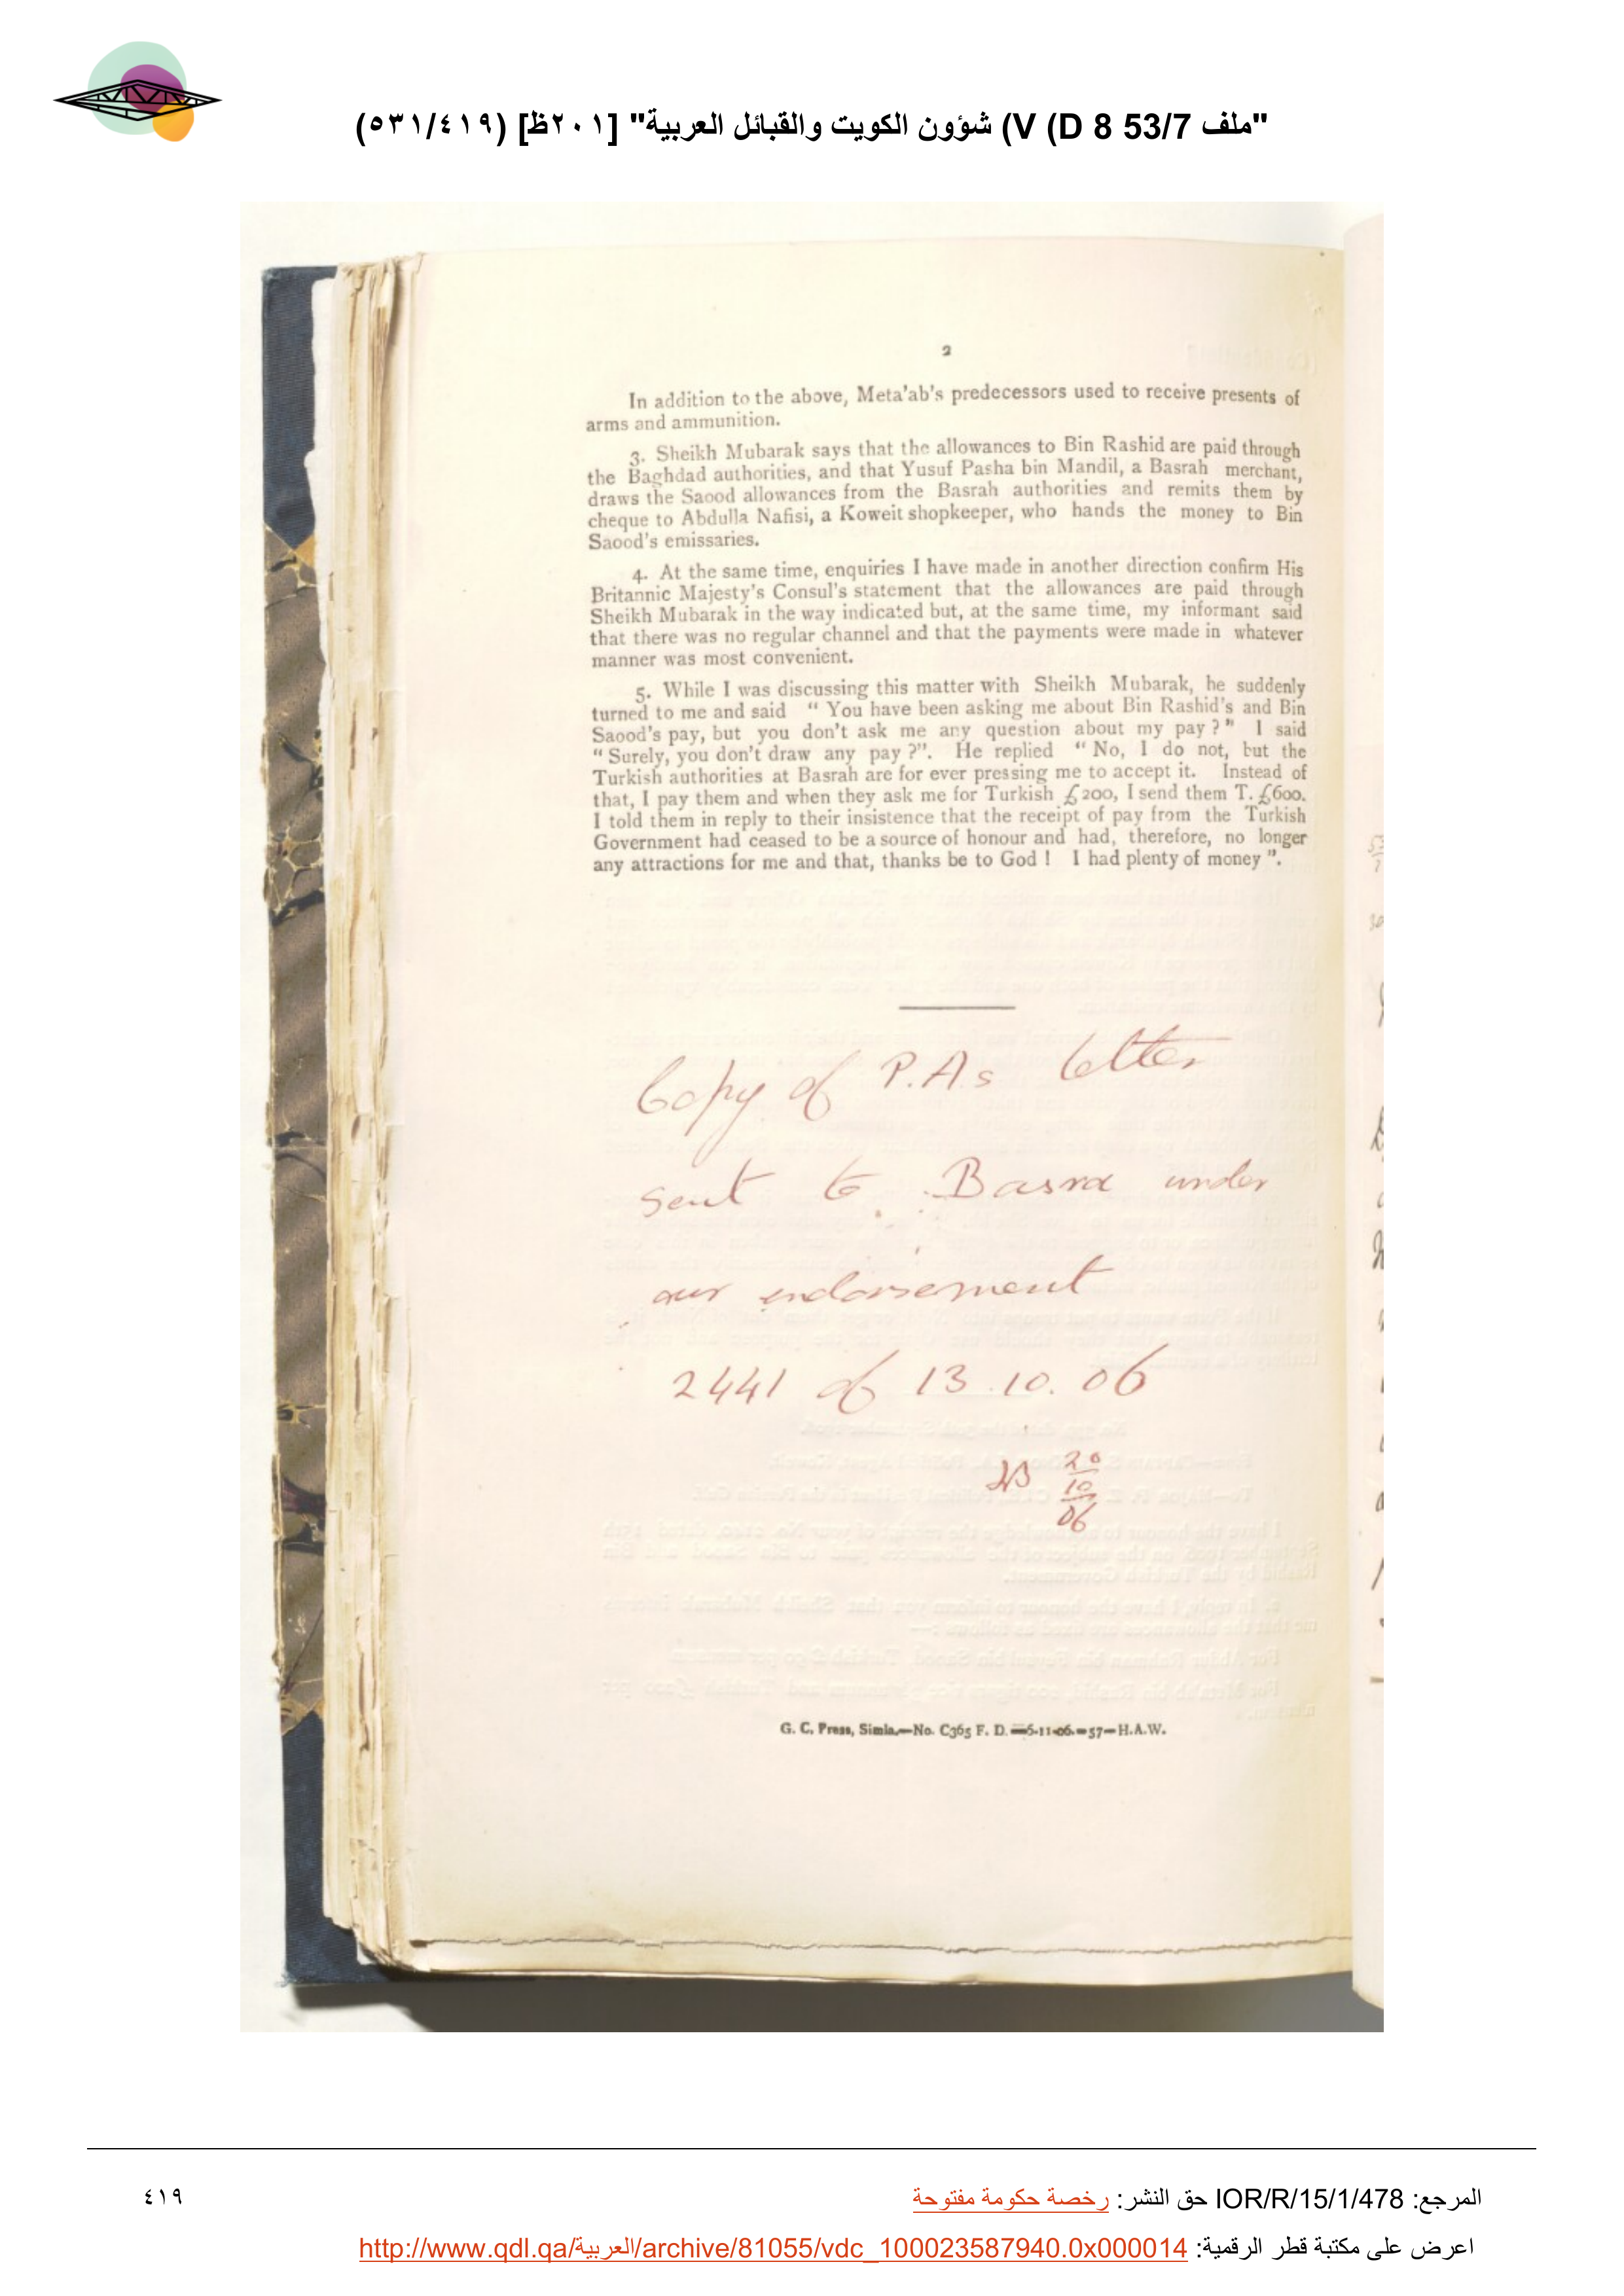 "ملف 53/7 V (D 8) شؤون الكويت والقبائل العربية" [٢٠١ظ] (٥٣١/٤١٩)
2
In addition to the above, Meta'ab's predecessors used to receive presents of
arms and ammunition.
3. Sheikh Mubarak says that the allowances to Bin Rashid are paid through
the Baghdad authorities, and that Yusuf Pasha bin Mandil, a Basrah merchant,
draws the Saood allowances from the Basrah authorities and remits them by
cheque to Abdulla Nafisi, a Koweit shopkeeper, who hands the money to Bin
Saood's emissaries.
4. At the same time, enquiries I have made in another direction confirm His
Britannic Majesty's Consul's statement that the allowances are paid through
Sheikh Mubarak in the way indicated but, at the same time, my informant said
that there was no regular channel and that the payments were made in whatever
manner was most convenient.
5. While I was discussing this matter with Sheikh Mubarak, he suddenly
turned to me and said " You have been asking me about Bin Rashid's and Bin
Saood's pay, but you don't ask me any question about my pay ? " I said
" Surely, you don't draw any pay ?". He replied " No, I do not, but the
Turkish authorities at Basrah are for ever pressing me to accept it. Instead of
that, I pay them and when they ask me for Turkish £200, I send them T. £600.
I told them in reply to their insistence that the receipt of pay from the Turkish
Government had ceased to be a source of honour and had, therefore, no longer
any attractions for me and that, thanks be to God ! I had plenty of money ".
Copy of P.A.s letter
sent to Basra under
our endorsement
2441 of 13.10.06
20
10
06
G. C. Press, Simla.—No. C365 F. D.—6-11-06.—57—H.A.W.
المرجع: IOR/R/15/1/478 حق النشر: رخصة حكومة مفتوحة
٤١٩
اعرض على مكتبة قطر الرقمية: http://www.qdl.qa/العربية/archive/81055/vdc_100023587940.0x000014